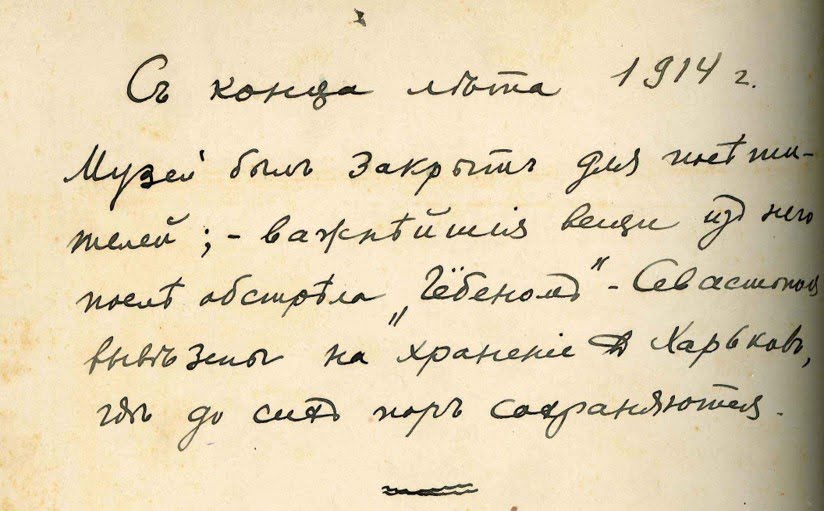 Съ конца лѣта 1914 г.
Музей былъ закрытъ для посѣти-
телей; - важнѣйшія вещи изъ него
послѣ обстрѣла „Гёбеномъ“ - Севастополя
вывѣзены на храненіе въ Харьковъ,
гдѣ до сихъ поръ сохраняются.